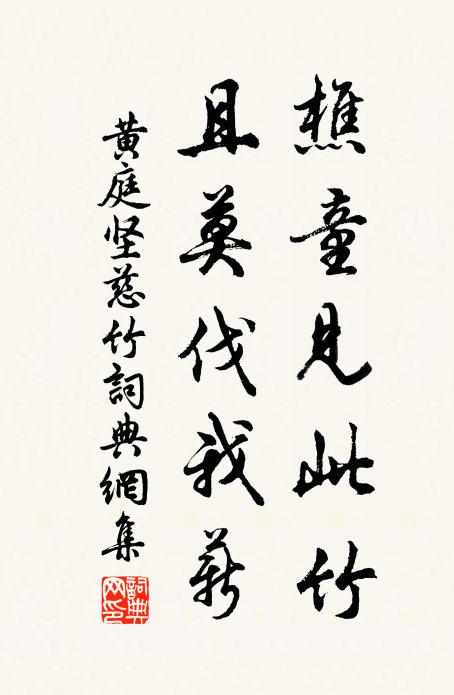 樵童見此竹
且莫伐我薪
黄庭坚慈竹詞典網集
詞典網印